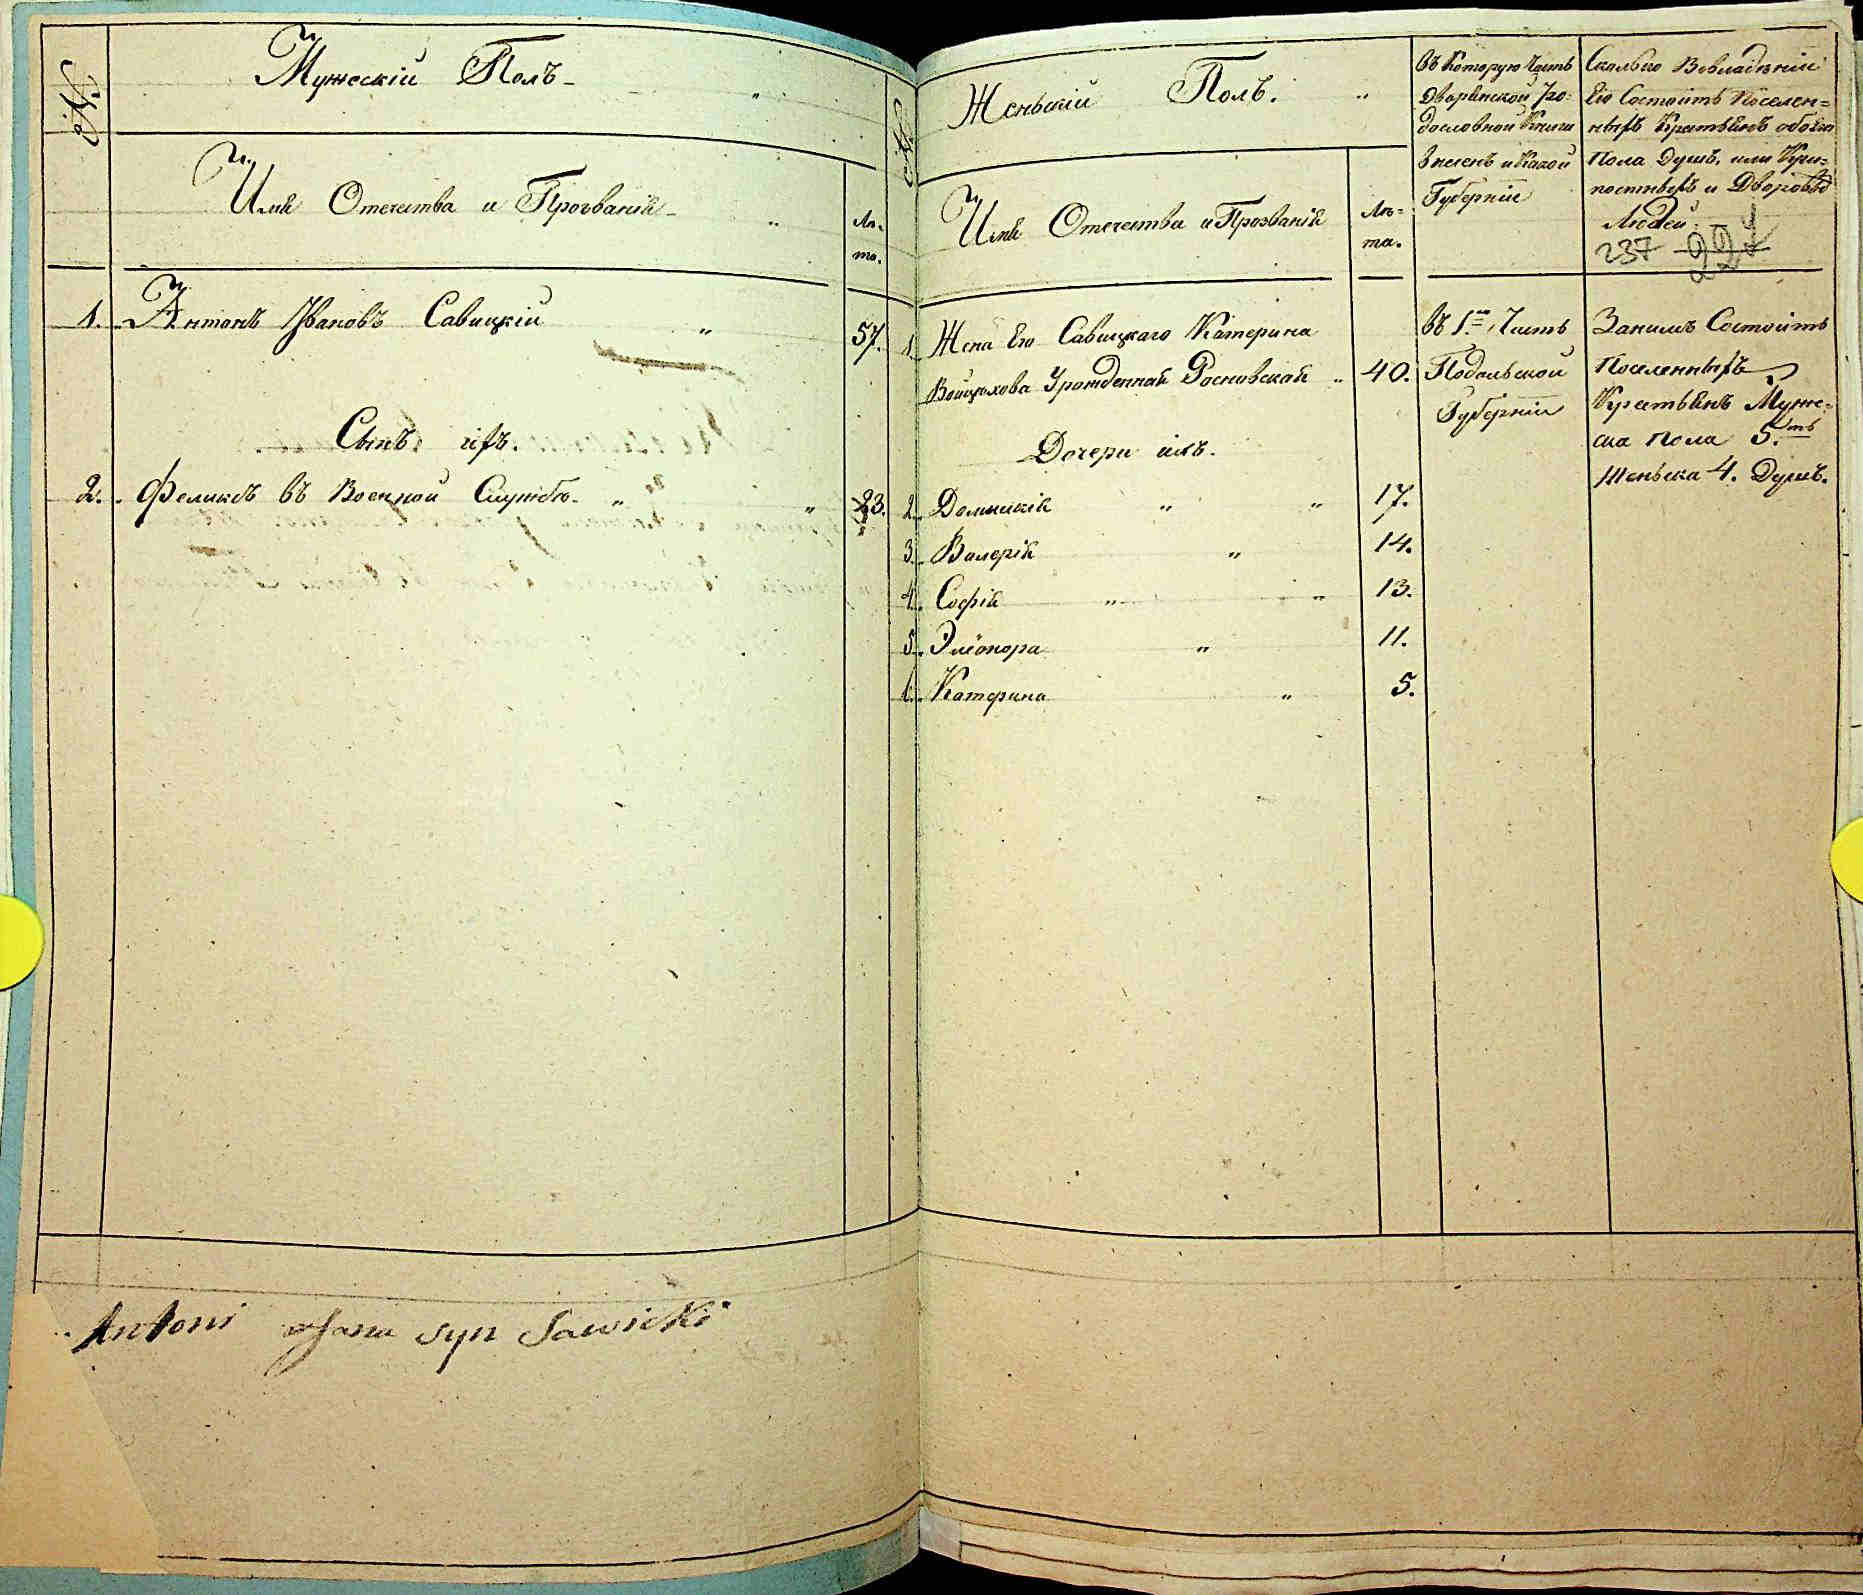 №
Мужескій Полъ
Имя Отечества и Прозванія
Ле-
та.
1. Антонъ Ивановъ Савицкій 57.
Сынъ ихъ.
2. Феликсъ въ Военной Службѣ 23.
№
Женьскій Полъ.
Имя Отечества и Прозванія
Ле-
та.
1. Жена Его Савицкаго Катерина
Войцѣхова Урожденная Росновская 40.
Дочери ихъ.
2. Домникія 17.
3. Валерія 14.
4. Софія 13.
5. Элеонора 11.
6. Катерина 5.
Въ Которую Часть
Дворянской Ро-
дословной Книги
внесенъ и Какой
Губерніи
въ 1.й Часть
Подольской
Губерніи
Сколько Вовладѣніи
Его Состоитъ Поселен=
ныхъ Крестьянъ обоего
Пола Душъ, или Крѣ-
постныхъ и Дворовыхъ
Людей
237 227
Занимъ Состоитъ
Поселенныхъ
Крестьянъ Муже-
ска Пола 5.ть
Женьска 4. Душъ.
Antoni Jana syn Sawicki